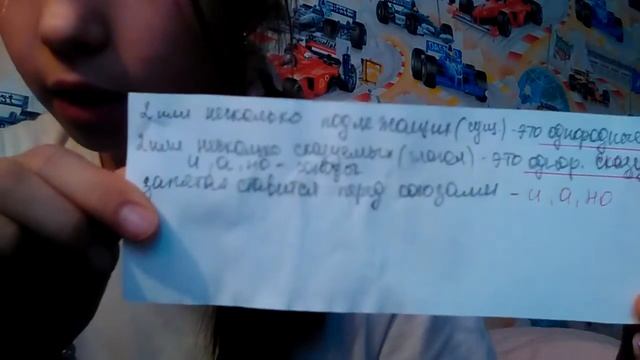 2 или несколько подлежащих (сущ.) - это однородные
2 или несколько сказуемых (глагол) - это однор. сказу
и, а, но - союзы
запятая ставится перед союзами - и, а, но